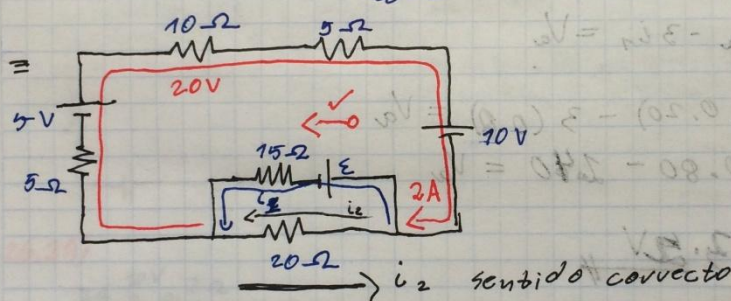 10Ω 5Ω
≡
20V
5V
10V
15Ω ε
5Ω
2A
i₂
20Ω
i₂ sentido correcto